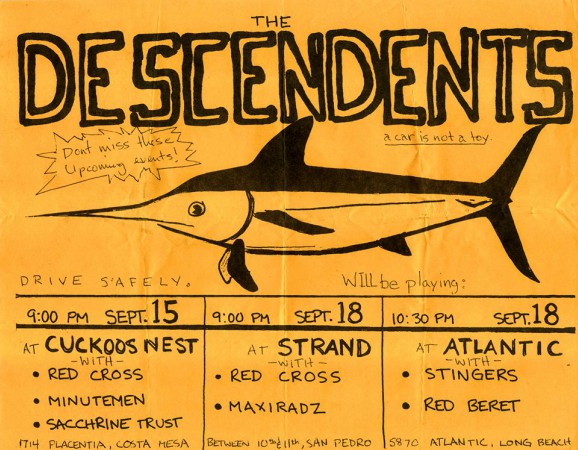 THE
DESCENDENTS
Dont miss these
Upcoming events!
a car is not a toy.
DRIVE SAFELY.
Will be playing:
9:00 PM SEPT. 15
AT CUCKOOS NEST
-WITH-
• RED CROSS
• MINUTEMEN
• SACCHRINE TRUST
1714 PLACENTIA, COSTA MESA
9:00 PM SEPT. 18
AT STRAND
-WITH-
• RED CROSS
• MAXIRADZ
BETWEEN 10th & 11th, SAN PEDRO
10:30 PM SEPT. 18
AT ATLANTIC
-WITH-
• STINGERS
• RED BERET
5870 ATLANTIC, LONG BEACH